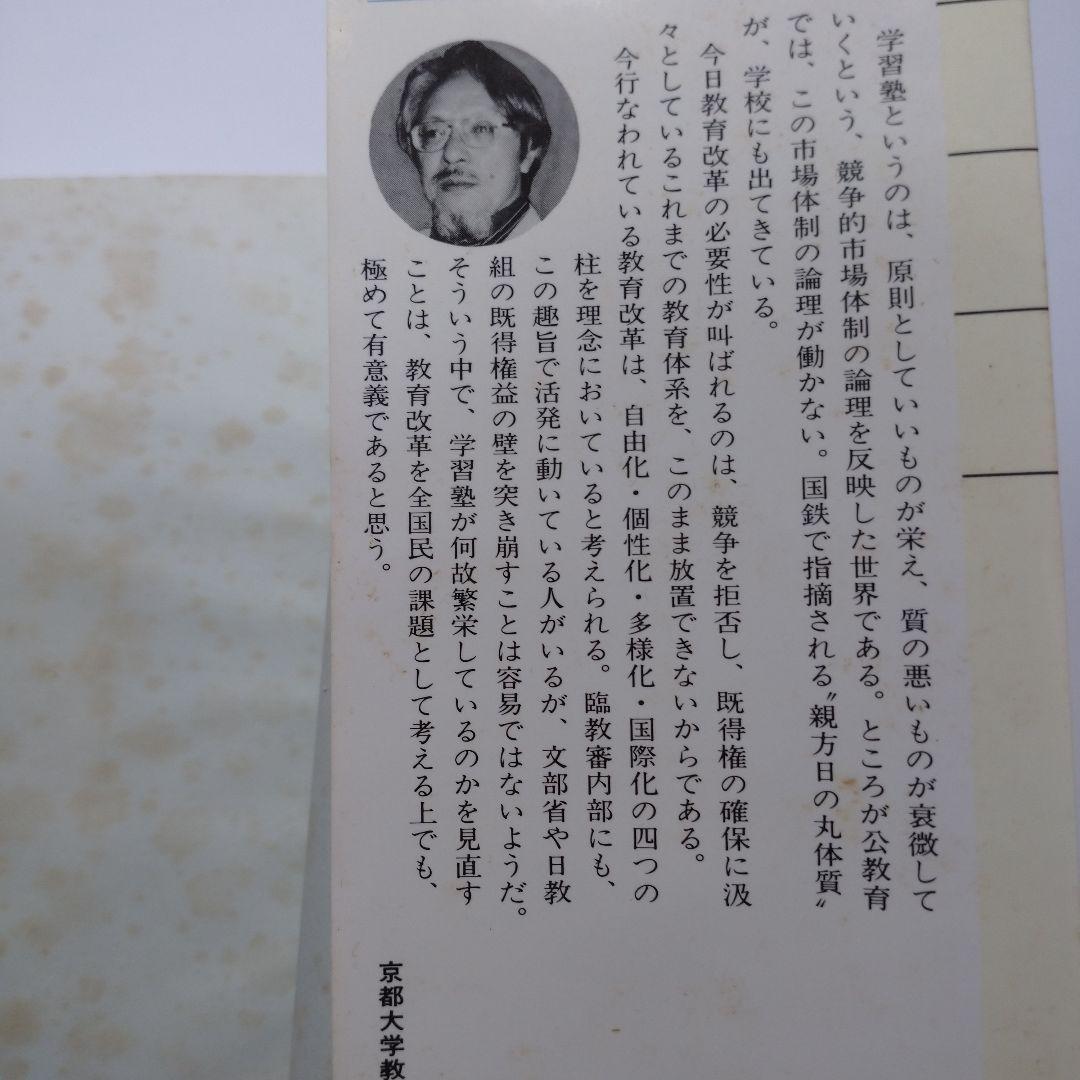 学習塾というのは、原則としていいものが栄え、質の悪いものが衰微して
いくという、競争的市場体制の論理を反映した世界である。ところが公教育
では、この市場体制の論理が働かない。国鉄で指摘される〝親方日の丸体質〟
が、学校にも出てきている。
今日教育改革の必要性が叫ばれるのは、競争を拒否し、既得権の確保に汲
々としているこれまでの教育体系を、このまま放置できないからである。
今行なわれている教育改革は、自由化・個性化・多様化・国際化の四つの
柱を理念においていると考えられる。臨教審内部にも、
この趣旨で活発に動いている人がいるが、文部省や日教
組の既得権益の壁を突き崩すことは容易ではないようだ。
そういう中で、学習塾が何故繁栄しているのかを見直す
ことは、教育改革を全国民の課題として考える上でも、
極めて有意義であると思う。
京都大学教